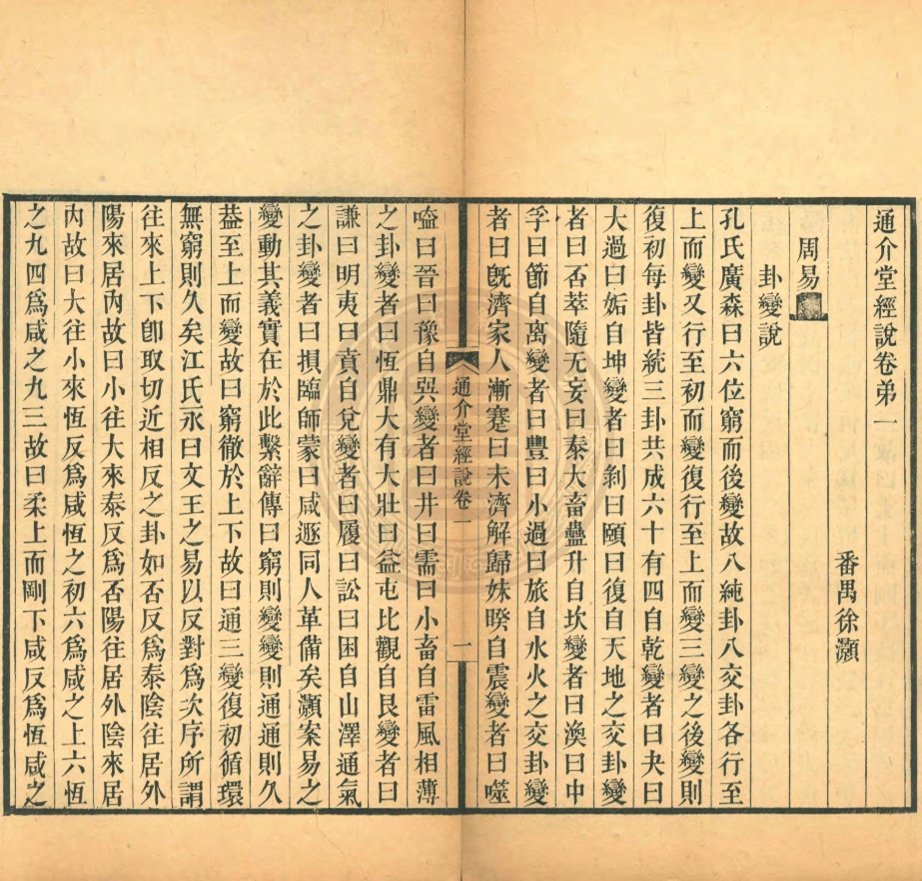 通介堂經說卷弟一
番禺徐灝
周易
卦變說
孔氏廣森曰六位窮而後變故八純卦八交卦各行至
上而變又行至初而變復行至上而變三變之後變則
復初每卦皆統三卦共成六十有四自乾變者曰夬曰
大過曰姤自坤變者曰剝曰頤曰復自天地之交卦變
者曰否萃隨无妄曰泰大畜蠱升自坎變者曰渙曰中
孚曰節自离變者曰豐曰小過曰旅自水火之交卦變
者曰旣濟家人漸蹇曰未濟解歸妹睽自震變者曰噬
通介堂經說卷一
一
嗑曰晉曰豫自巽變者曰井曰需曰小畜自雷風相薄
之卦變者曰恆鼎大有大壯曰益屯比觀自艮變者曰
謙曰明夷曰賁自兌變者曰履曰訟曰困自山澤通氣
之卦變者曰損臨師蒙曰咸遯同人革備矣灝案易之
變動其義實在於此繫辭傳曰窮則變變則通通則久
葢至上而變故曰窮徹於上下故曰通三變復初循環
無窮則久矣江氏永曰文王之易以反對爲次序所謂
往來上下卽取切近相反之卦如否反爲泰陰往居外
陽來居內故曰小往大來泰反爲否陽往居外陰來居
內故曰大往小來恆反爲咸恆之初六爲咸之上六恆
之九四爲咸之九三故曰柔上而剛下咸反爲恆咸之